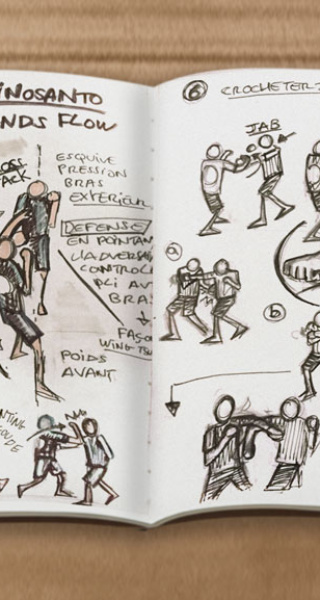 INOSANTO
NDS FLOW
ESQUIVE
PRESSION
BRAS
EXTERIEUR
DEFENSE
EN POINTAN
L'ADVERSA
CONTROL
PLI AV
BRAS
FAÇO
WING TSU
POIDS
AVANT
6
CROCHETER
JAB
a
b